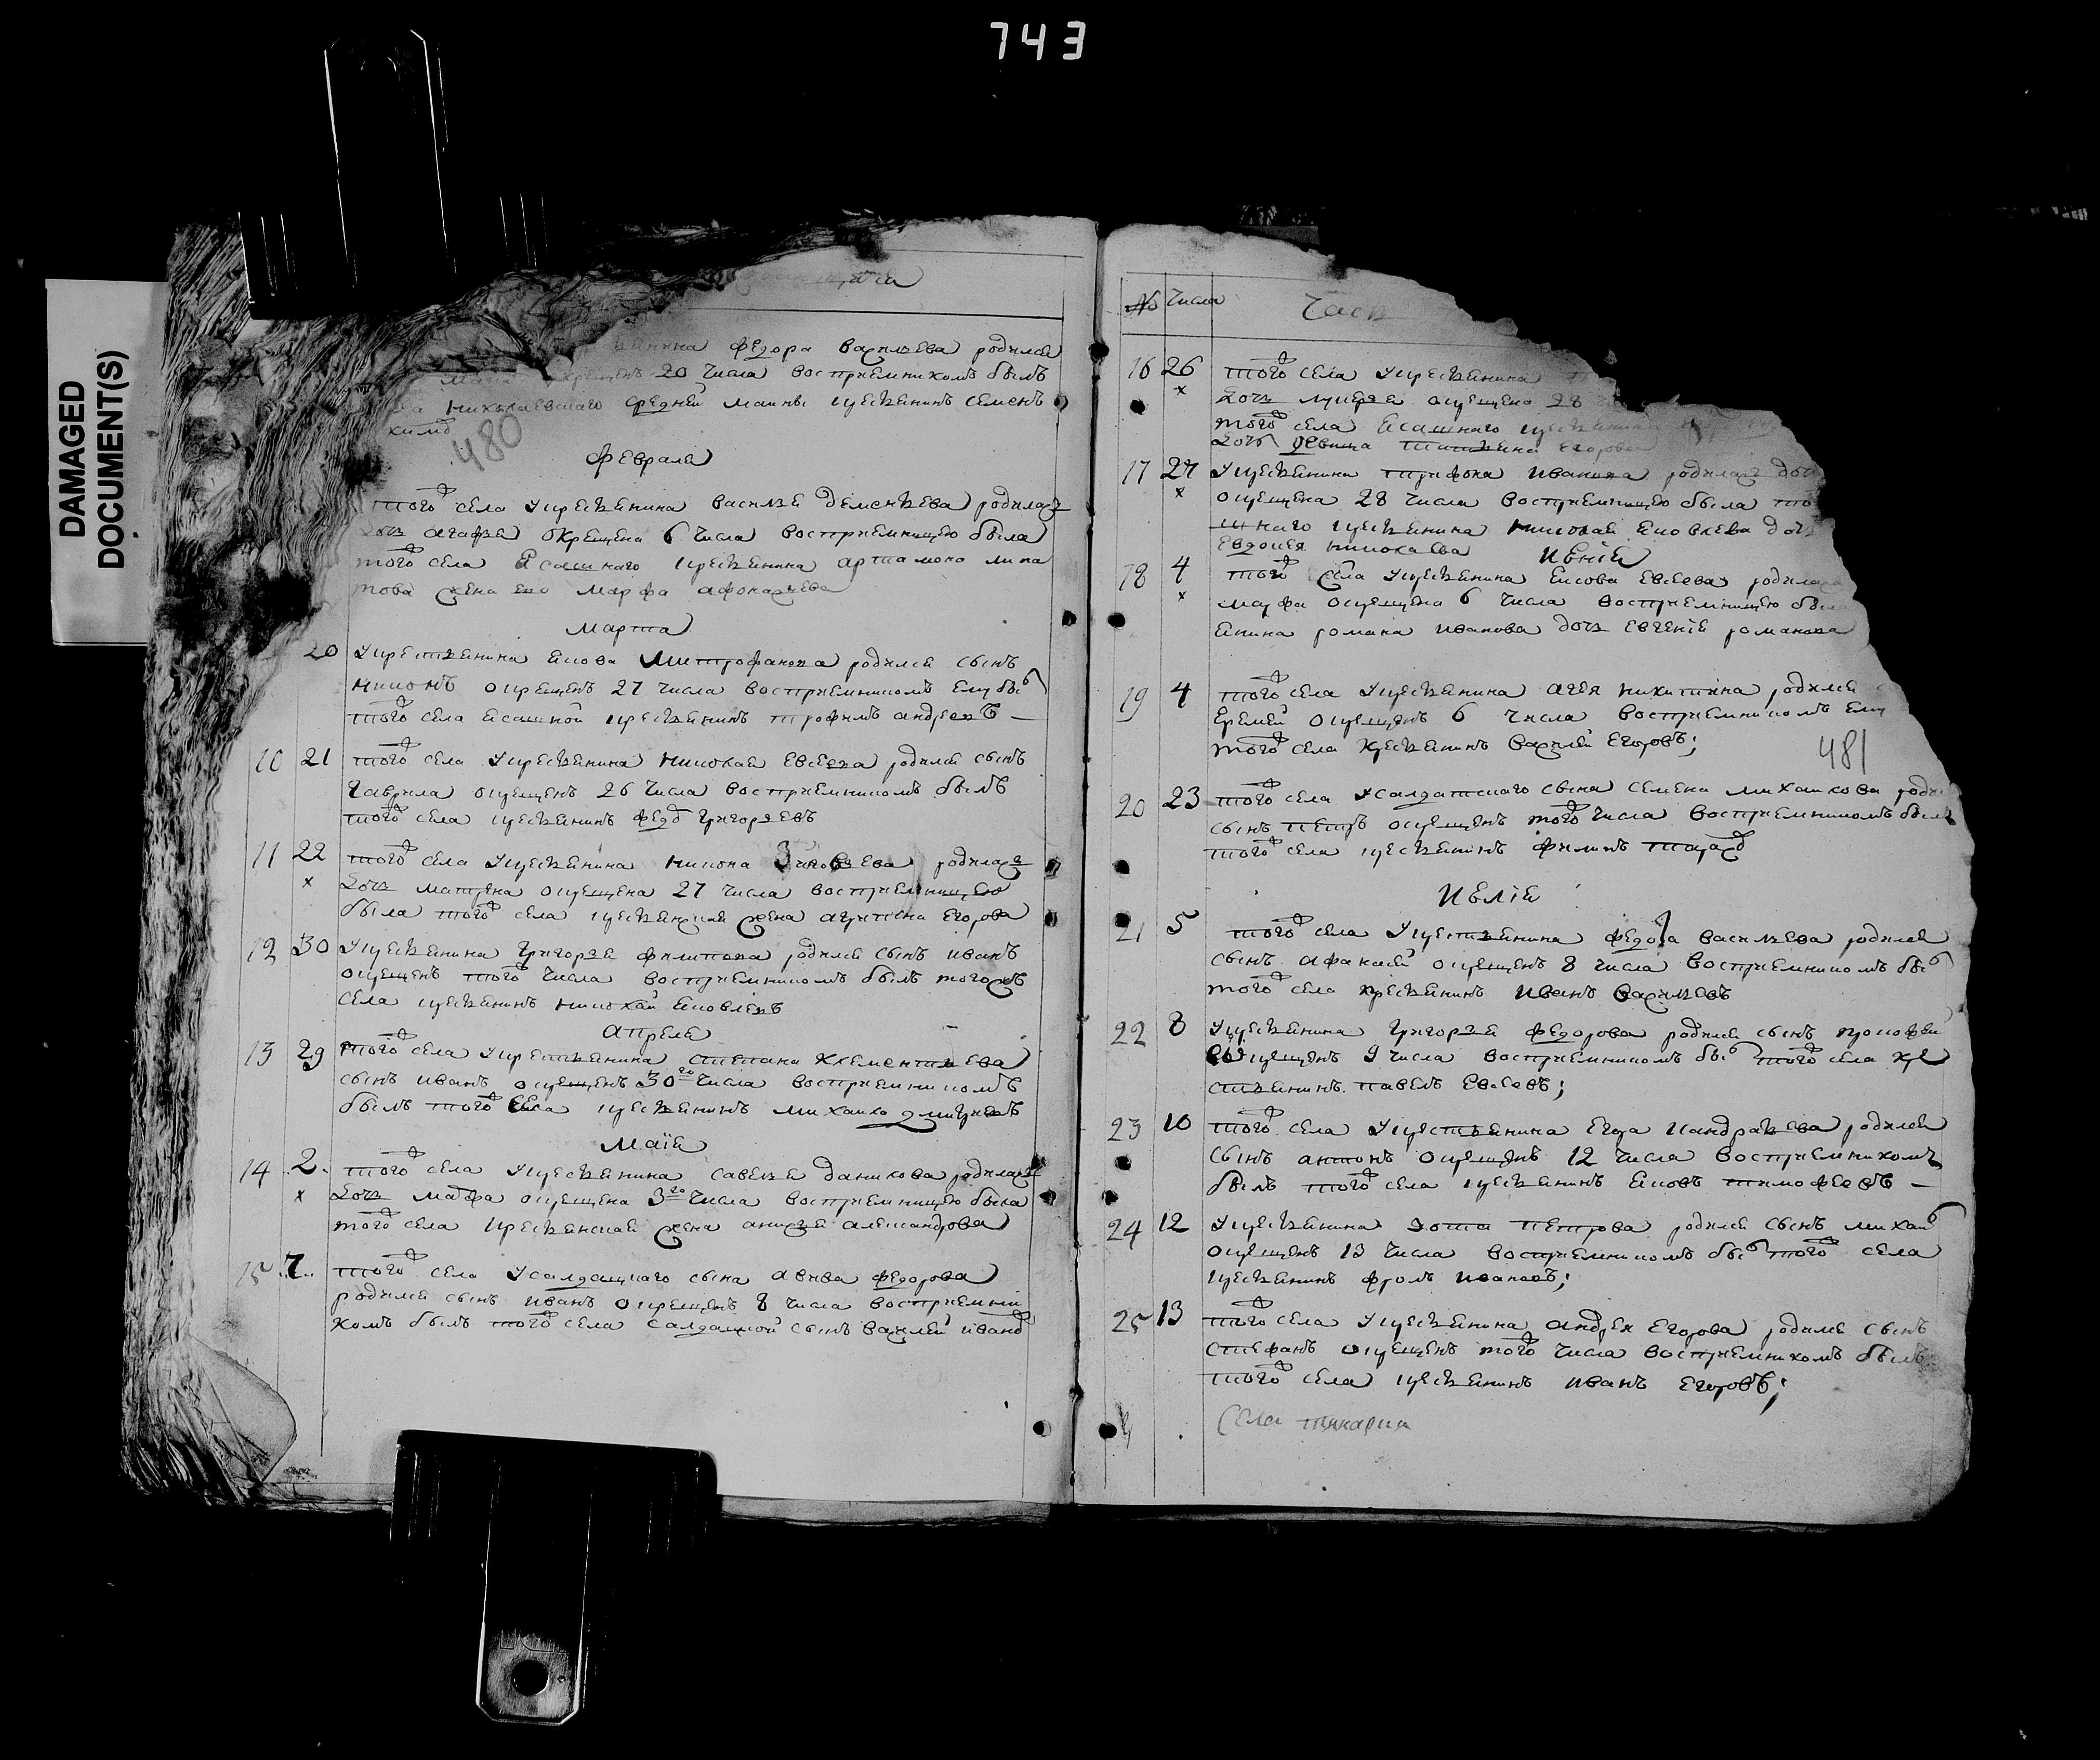 743
DAMAGED
DOCUMENT(S)
федора васильева родился
крещенъ 20 числа восприемникомъ былъ
николаевскаго средней маины крестьянинъ семенъ
480
февраля
того села у крестьянина василья дементьева родилась
дочь агафья окрещена 6 числа восприемницею была
того села ясашнаго крестьянина артамона
жена ево марфа афонасьева
марта
20 у крестьянина якова митрофанова родился сынъ
никонъ окрещенъ 27 числа восприемникомъ ему былъ
того села ясашной крестьянинъ трофимъ андреевъ
10 21 того села у крестьянина николая евсеева родился сынъ
гаврила окрещенъ 26 числа восприемникомъ былъ
того села крестьянинъ григорьевъ
11 22 того села у крестьянина никона зиновьева родилась
дочь матрена окрещена 27 числа восприемницею
была того села крестьянская жена агрипена егорова
12 30 у крестьянина григорья филипова родился сынъ иванъ
окрещенъ того числа восприемникомъ былъ тогожъ
села крестьянинъ николай яковлевъ
апреля
13 29 того села у крестьянина степана клементьева
сынъ иванъ окрещенъ 30го числа восприемникомъ
былъ того села крестьянинъ михайло
маія
14 2 того села у крестьянина савелья данилова родилась
дочь марфа окрещена 3го числа восприемницею была
того села крестьянская жена анисья александрова
15 7 того села у салдацкаго сына авива федорова
родился сынъ иванъ окрещенъ 8 числа восприемни
комъ былъ того села салдацкой сынъ василей иванов
№ числа часть
16 26 того села у крестьянина
дочь окрещена 28
того села ясашнаго крестьянина
дочь девица татьяна егорова
17 27 у крестьянина трифона иванова родилась дочь
окрещена 28 числа восприемницею была
шнаго крестьянина николая яковлева дочь
евдокея николаева июнія
18 4 того села у крестьянина якова евсеева родилась
марфа окрещена 6 числа восприемницею была
янина романа иванова дочь евгенія романова
19 4 того села у крестьянина агея никитина родился
еремей окрещенъ 6 числа восприемникомъ ему
того села крестьянинъ василей егоровъ;
481
20 23 того села у салдатскаго сына семена михайлова
сынъ петръ окрещенъ того числа восприемникомъ былъ
того села крестьянинъ филипъ
июлія
21 5 того села у крестьянина федора васильева родился
сынъ афанасей окрещенъ 8 числа восприемникомъ былъ
того села крестьянинъ иванъ васильевъ
22 8 у крестьянина григорья федорова родился сынъ прокофей
окрещенъ 9 числа восприемникомъ былъ того села кре
стьянинъ павелъ евсеевъ;
23 10 того села у крестьянина егора кандратьева родился
сынъ антонъ окрещенъ 12 числа восприемникомъ
былъ того села крестьянинъ яковъ тимофеевъ
24 12 у крестьянина петрова родился сынъ михаилъ
окрещенъ 13 числа восприемникомъ былъ того села
крестьянинъ фролъ ивановъ;
25 13 того села у крестьянина андрея егорова родился сынъ
стефанъ окрещенъ того числа восприемникомъ былъ
того села крестьянинъ иванъ егоровъ;
села